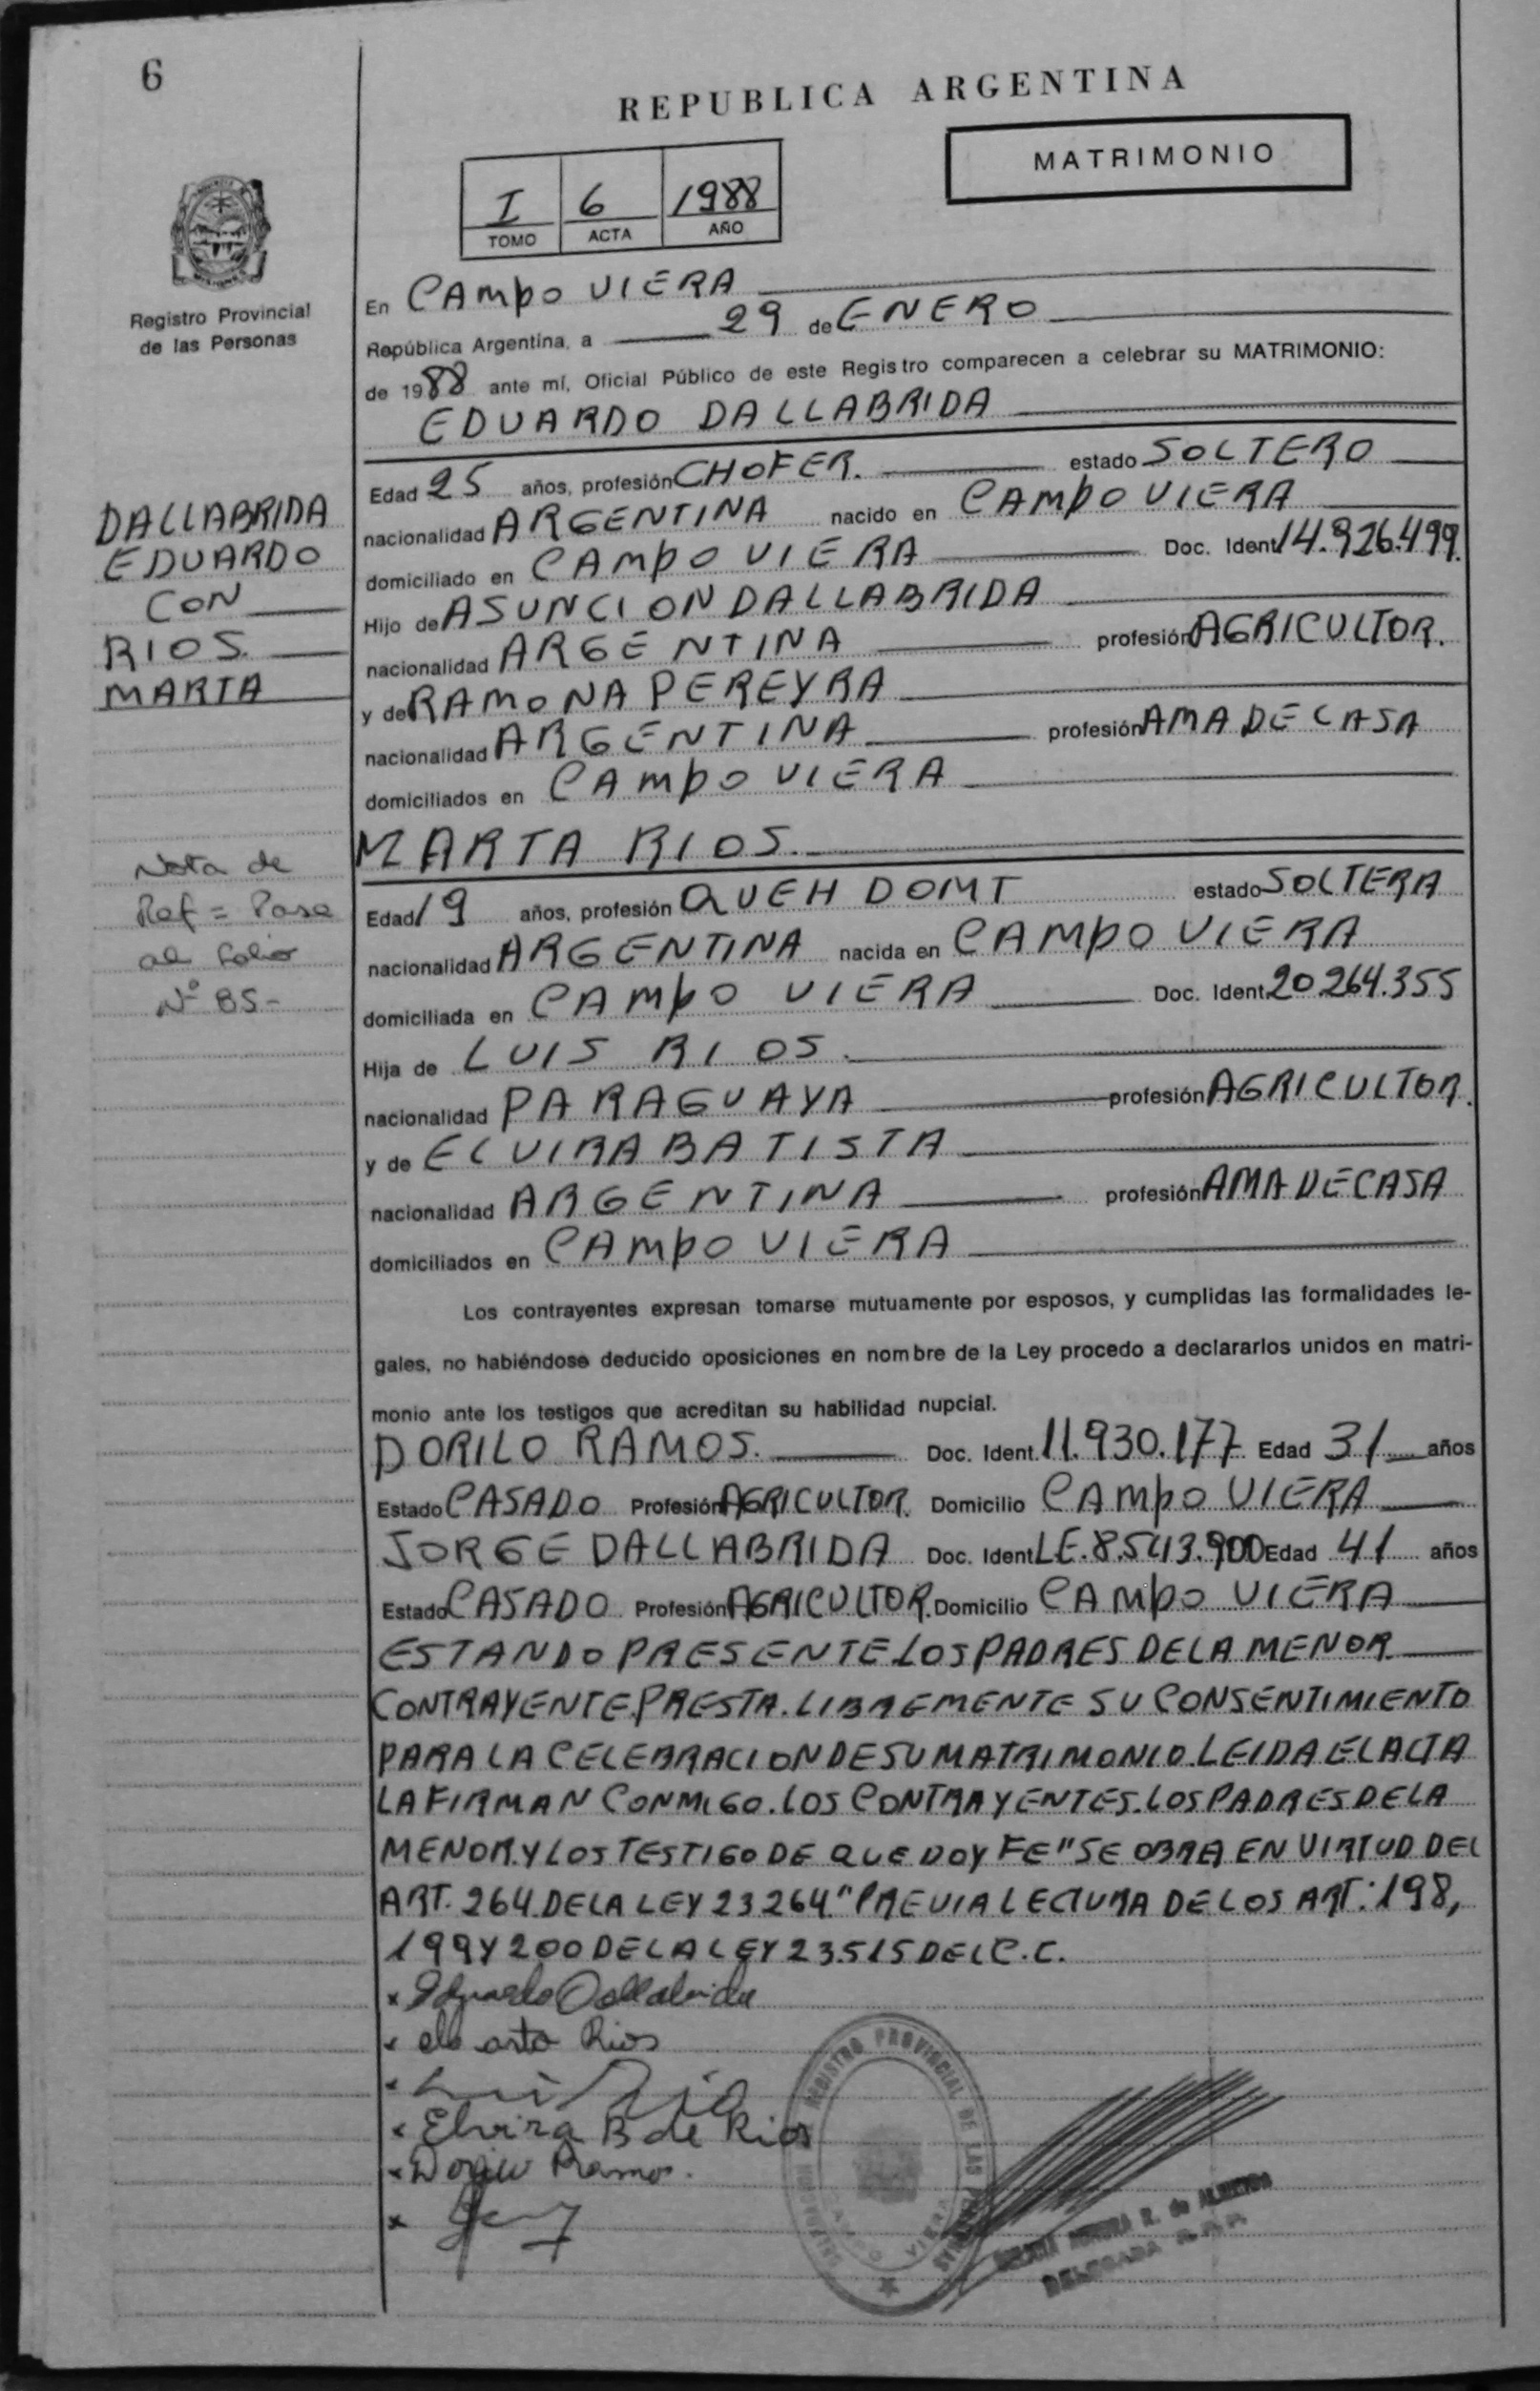 6
REPUBLICA ARGENTINA
MATRIMONIO
I 6 1988
TOMO ACTA AÑO
Registro Provincial
de las Personas
En CAMPO VIERA
República Argentina, a 29 de ENERO
de 1988 ante mí, Oficial Público de este Registro comparecen a celebrar su MATRIMONIO:
EDUARDO DALLABRIDA
Edad 25 años, profesión CHOFER. estado SOLTERO
nacionalidad ARGENTINA nacido en CAMPO VIERA
domiciliado en CAMPO VIERA Doc. Ident. 14.926.499.
Hijo de ASUNCION DALLABRIDA
nacionalidad ARGENTINA profesión AGRICULTOR.
y de RAMONA PEREYRA
nacionalidad ARGENTINA profesión AMA DE CASA
domiciliados en CAMPO VIERA
DALLABRIDA
EDUARDO
CON
RIOS
MARTA
MARTA RIOS.
Edad 19 años, profesión QUEH DOMT estado SOLTERA
nacionalidad ARGENTINA nacida en CAMPO VIERA
domiciliada en CAMPO VIERA Doc. Ident. 20.264.355
Hija de LUIS RIOS.
nacionalidad PARAGUAYA profesión AGRICULTOR.
y de ELVIRA BATISTA
nacionalidad ARGENTINA profesión AMA DE CASA
domiciliados en CAMPO VIERA
Nota de
Ref = Pase
al folio
Nº 85-
Los contrayentes expresan tomarse mutuamente por esposos, y cumplidas las formalidades le-
gales, no habiéndose deducido oposiciones en nombre de la Ley procedo a declararlos unidos en matri-
monio ante los testigos que acreditan su habilidad nupcial.
DORILO RAMOS. Doc. Ident. 11.930.177 Edad 31 años
Estado CASADO Profesión AGRICULTOR. Domicilio CAMPO VIERA
JORGE DALLABRIDA Doc. Ident. LE.8.543.900 Edad 41 años
Estado CASADO Profesión AGRICULTOR. Domicilio CAMPO VIERA
ESTANDO PRESENTE LOS PADRES DE LA MENOR
CONTRAYENTE. PRESTA. LIBREMENTE SU CONSENTIMIENTO
PARA LA CELEBRACION DE SU MATRIMONIO. LEIDA EL ACTA
LA FIRMAN CONMIGO. LOS CONTRAYENTES. LOS PADRES DE LA
MENOR. Y LOS TESTIGO DE QUE DOY FE "SE OBRA EN VIRTUD DEL
ART. 264 DE LA LEY 23264" PREVIA LECTURA DE LOS ART: 198,
199 Y 200 DE LA LEY 23.515 DEL C.C.
x Eduardo Dallabrida
x Marta Rios
x Luis Rio
x Elvira B de Rios
x Dorilo Ramos.
x
REGISTRO PROVINCIAL DE LAS PERSONAS
VIERA
R. de ALMEIDA
DELEGADA